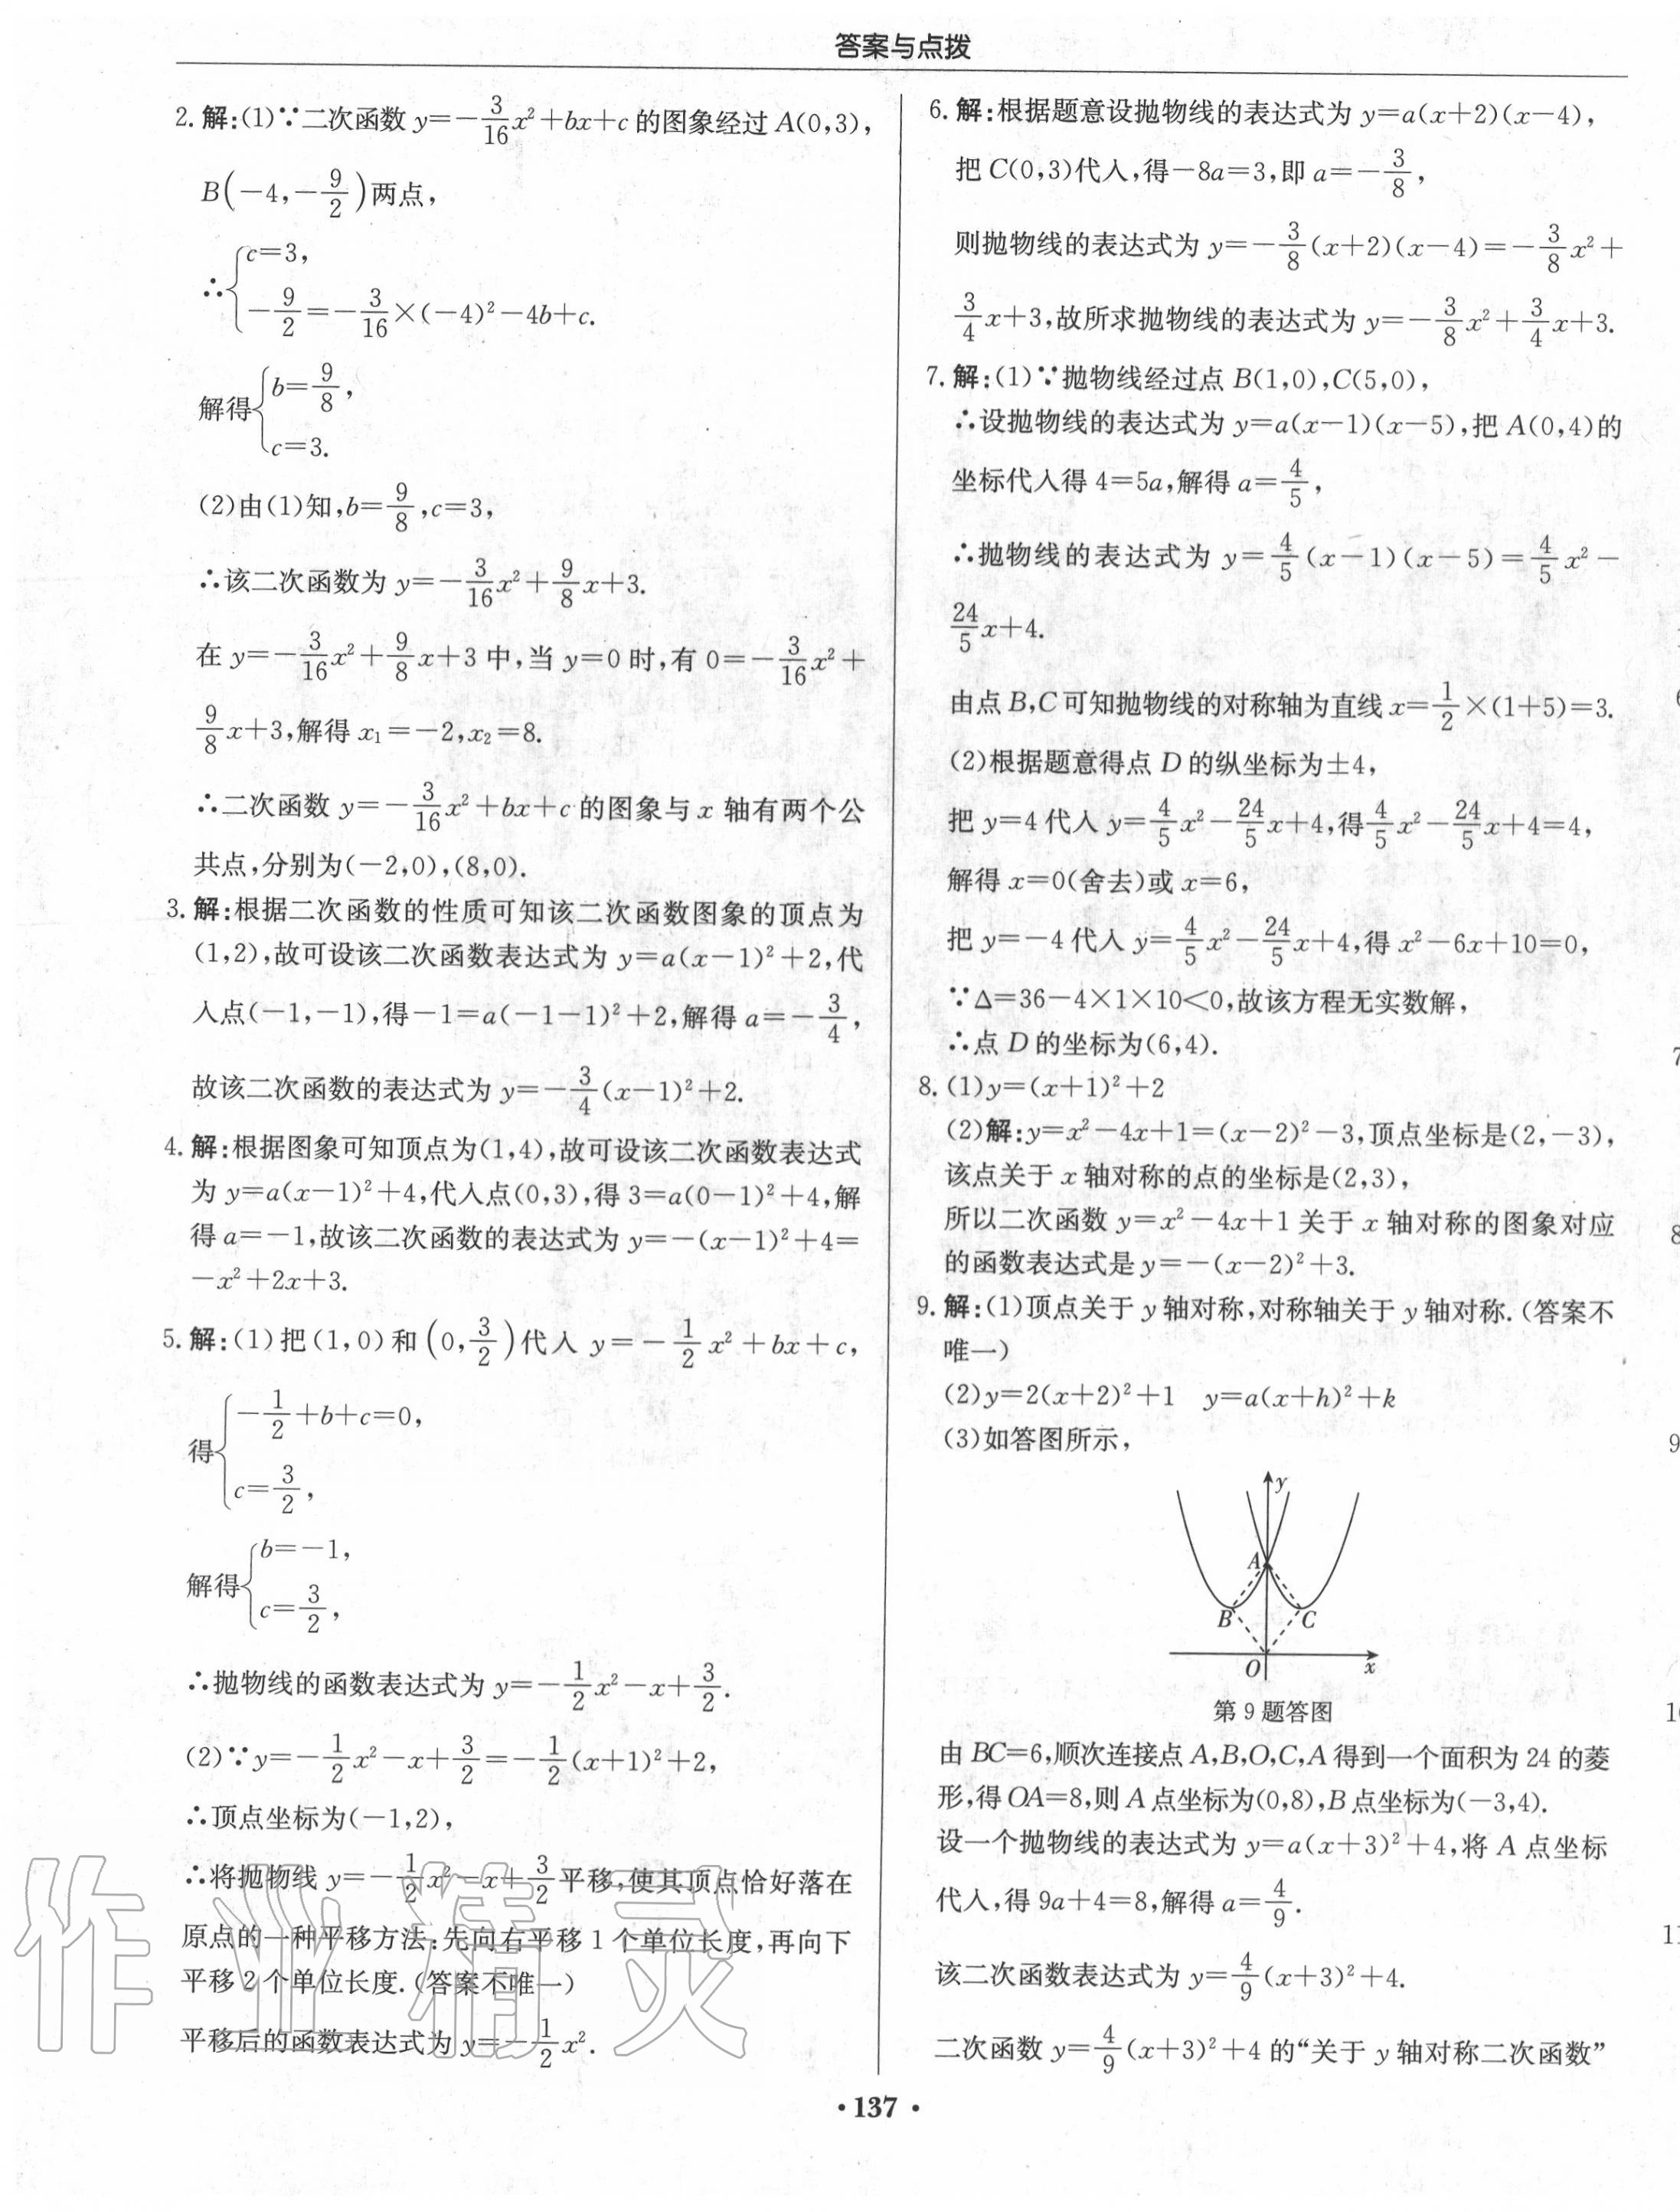 答案与点拨
2. 解:(1)∵二次函数 y=-3/16x²+bx+c 的图象经过 A(0,3),
B(-4,-9/2)两点,
∴{c=3,
-9/2=-3/16×(-4)²-4b+c.
解得{b=9/8,
c=3.
(2)由(1)知,b=9/8,c=3,
∴该二次函数为 y=-3/16x²+9/8x+3.
在 y=-3/16x²+9/8x+3 中,当 y=0 时,有 0=-3/16x²+
9/8x+3,解得 x₁=-2,x₂=8.
∴二次函数 y=-3/16x²+bx+c 的图象与 x 轴有两个公
共点,分别为(-2,0),(8,0).
3. 解:根据二次函数的性质可知该二次函数图象的顶点为
(1,2),故可设该二次函数表达式为 y=a(x-1)²+2,代
入点(-1,-1),得-1=a(-1-1)²+2,解得 a=-3/4,
故该二次函数的表达式为 y=-3/4(x-1)²+2.
4. 解:根据图象可知顶点为(1,4),故可设该二次函数表达式
为 y=a(x-1)²+4,代入点(0,3),得 3=a(0-1)²+4,解
得 a=-1,故该二次函数的表达式为 y=-(x-1)²+4=
-x²+2x+3.
5. 解:(1)把(1,0)和(0,3/2)代入 y=-1/2x²+bx+c,
得{-1/2+b+c=0,
c=3/2,
解得{b=-1,
c=3/2,
∴抛物线的函数表达式为 y=-1/2x²-x+3/2.
(2)∵y=-1/2x²-x+3/2=-1/2(x+1)²+2,
∴顶点坐标为(-1,2),
∴将抛物线 y=-1/2x²-x+3/2平移,使其顶点恰好落在
原点的一种平移方法:先向右平移 1 个单位长度,再向下
平移 2 个单位长度.(答案不唯一)
平移后的函数表达式为 y=-1/2x².
6. 解:根据题意设抛物线的表达式为 y=a(x+2)(x-4),
把 C(0,3)代入,得-8a=3,即 a=-3/8,
则抛物线的表达式为 y=-3/8(x+2)(x-4)=-3/8x²+
3/4x+3,故所求抛物线的表达式为 y=-3/8x²+3/4x+3.
7. 解:(1)∵抛物线经过点 B(1,0),C(5,0),
∴设抛物线的表达式为 y=a(x-1)(x-5),把 A(0,4)的
坐标代入得 4=5a,解得 a=4/5,
∴抛物线的表达式为 y=4/5(x-1)(x-5)=4/5x²-
24/5x+4.
由点 B,C 可知抛物线的对称轴为直线 x=1/2×(1+5)=3.
(2)根据题意得点 D 的纵坐标为±4,
把 y=4 代入 y=4/5x²-24/5x+4,得4/5x²-24/5x+4=4,
解得 x=0(舍去)或 x=6,
把 y=-4 代入 y=4/5x²-24/5x+4,得 x²-6x+10=0,
∵Δ=36-4×1×10<0,故该方程无实数解,
∴点 D 的坐标为(6,4).
8. (1)y=(x+1)²+2
(2)解:y=x²-4x+1=(x-2)²-3,顶点坐标是(2,-3),
该点关于 x 轴对称的点的坐标是(2,3),
所以二次函数 y=x²-4x+1 关于 x 轴对称的图象对应
的函数表达式是 y=-(x-2)²+3.
9. 解:(1)顶点关于 y 轴对称,对称轴关于 y 轴对称.(答案不
唯一)
(2)y=2(x+2)²+1 y=a(x+h)²+k
(3)如答图所示,
y
A
B C
O x
第 9 题答图
由 BC=6,顺次连接点 A,B,O,C,A 得到一个面积为 24 的菱
形,得 OA=8,则 A 点坐标为(0,8),B 点坐标为(-3,4).
设一个抛物线的表达式为 y=a(x+3)²+4,将 A 点坐标
代入,得 9a+4=8,解得 a=4/9.
该二次函数表达式为 y=4/9(x+3)²+4.
二次函数 y=4/9(x+3)²+4 的“关于 y 轴对称二次函数”
作业精灵
· 137 ·